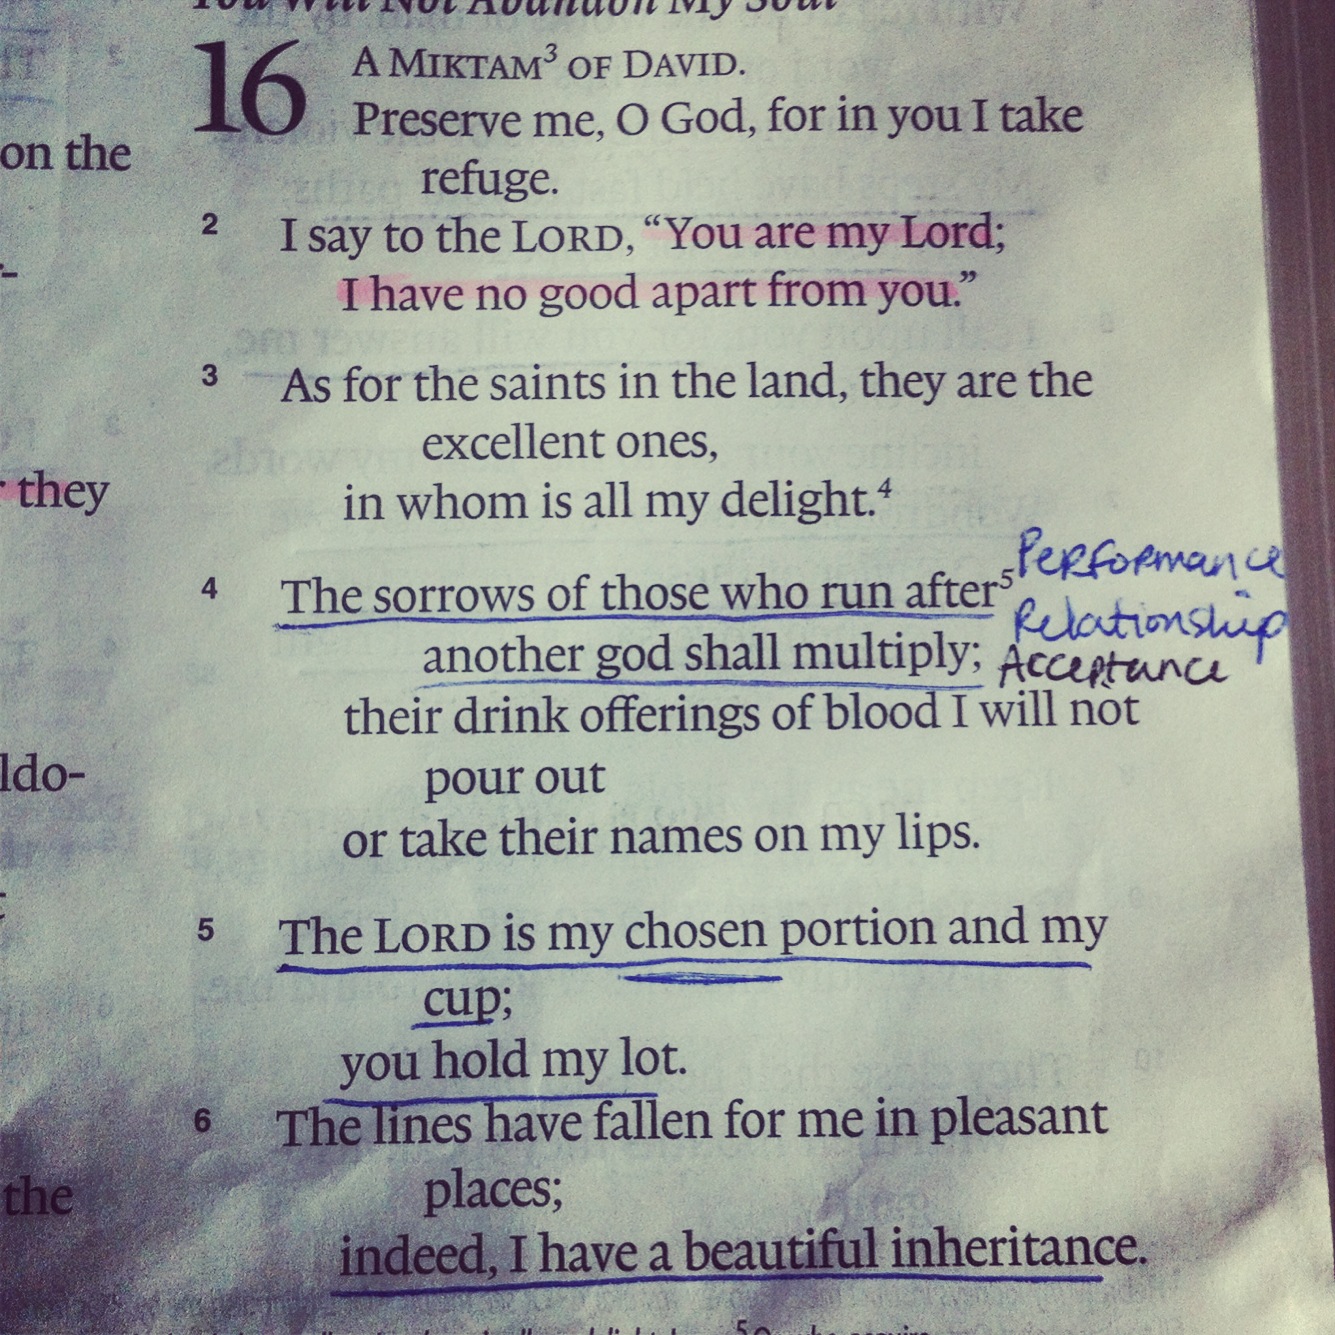 You Will Not Abandon My Soul
16 A MIKTAM³ OF DAVID.
Preserve me, O God, for in you I take
refuge.
on the
2 I say to the LORD, “You are my Lord;
I have no good apart from you.”
3 As for the saints in the land, they are the
excellent ones,
they
in whom is all my delight.⁴
Performance
4 The sorrows of those who run after⁵
Relationship
another god shall multiply;
Acceptance
their drink offerings of blood I will not
pour out
ldo-
or take their names on my lips.
5 The LORD is my chosen portion and my
cup;
you hold my lot.
6 The lines have fallen for me in pleasant
places;
the
indeed, I have a beautiful inheritance.